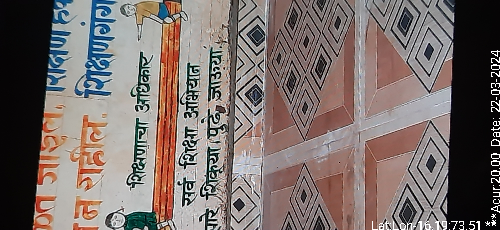 जाईल, शिक्षण
राहील. शिक्षणगंगा
शिक्षणाचा अधिकार
सर्व शिक्षा अभियान
शिकूया पुढे जाऊया
Lat,Lon-16.19,73.51 ***
Acur:20.00, Date: 22-03-2024